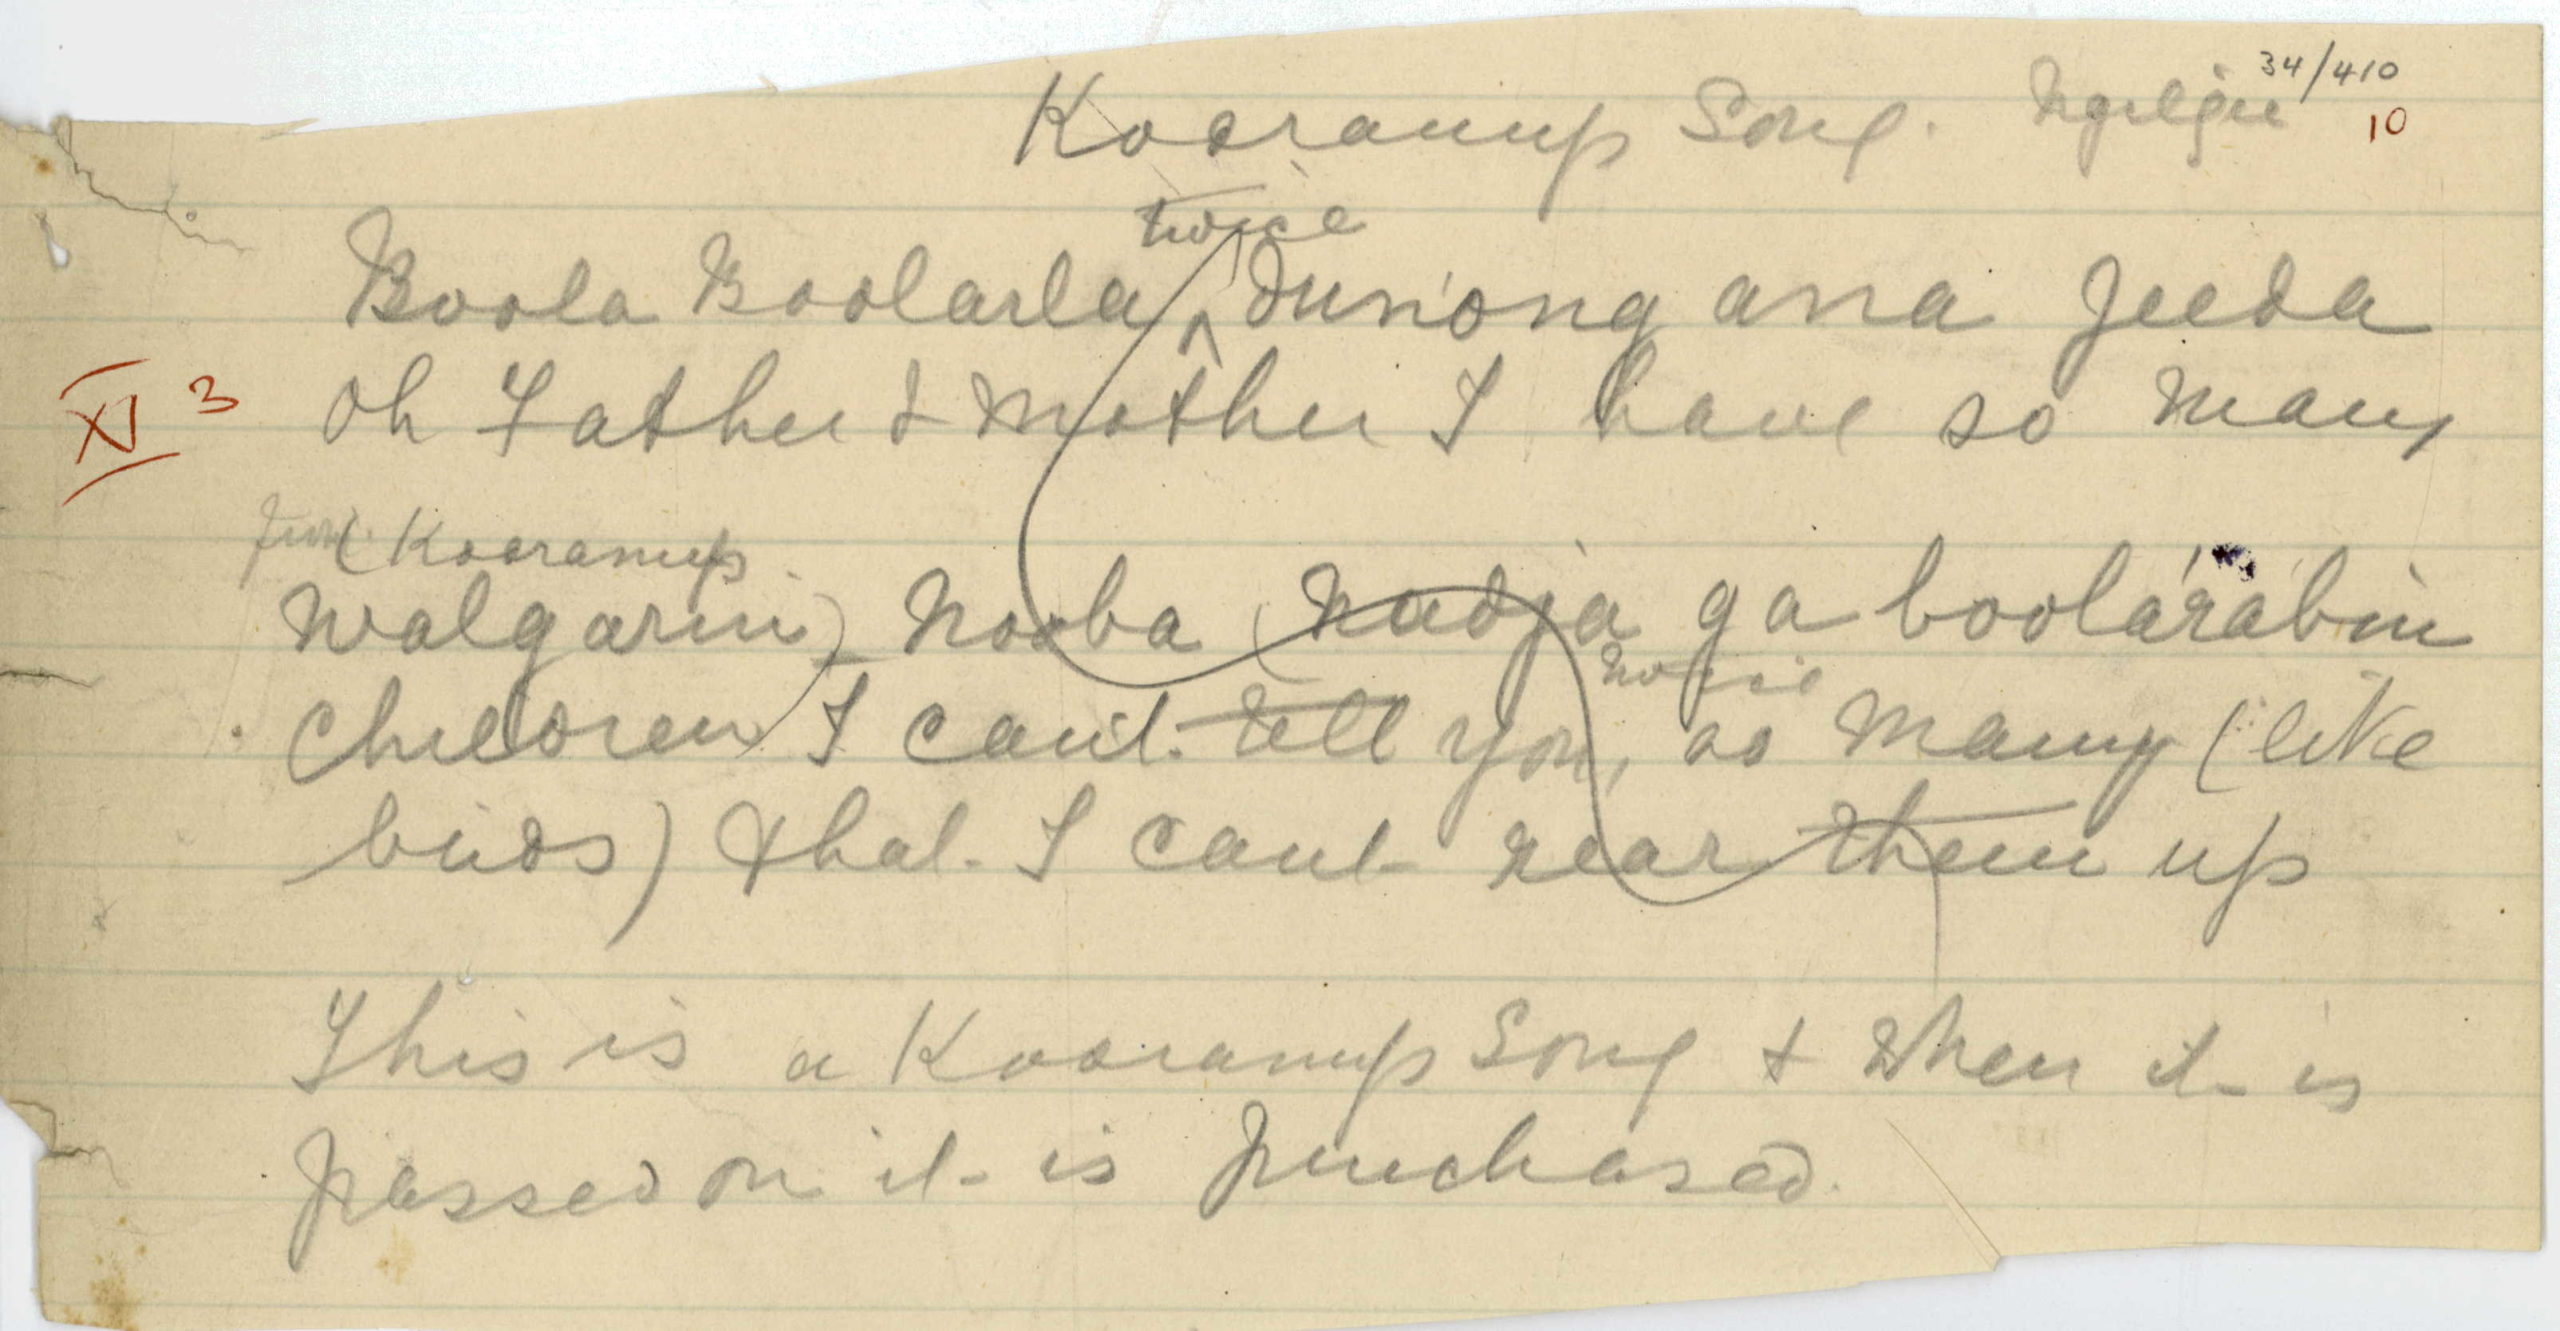 34/410
Kooranup Song. Ngilgie
10
twice
Boola Boolarla ^ dunong ana jeeda
XI 3
Oh Father & Mother I have so many
(Kooranup
walgarin) Nooba (nadja ga boolarabin
twice
Children I can't tell you, so many (like
birds) that I can't rear them up
This is a Kooranup Song & when it is
passed on it is purchased.